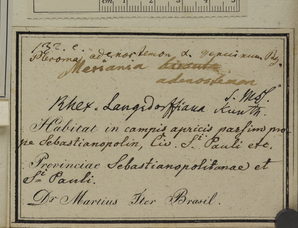 132. c.
adenostemon
Meriania
adenostemon
Rhex. Langsdorffiana
Kunth.
Habitat in campis apricis passim pro-
pe Sebastianopolin, Civ. Sti Pauli etc.
Provinciae Sebastianopolitanae et
Sti Pauli.
Dr Martius Iter Brasil.